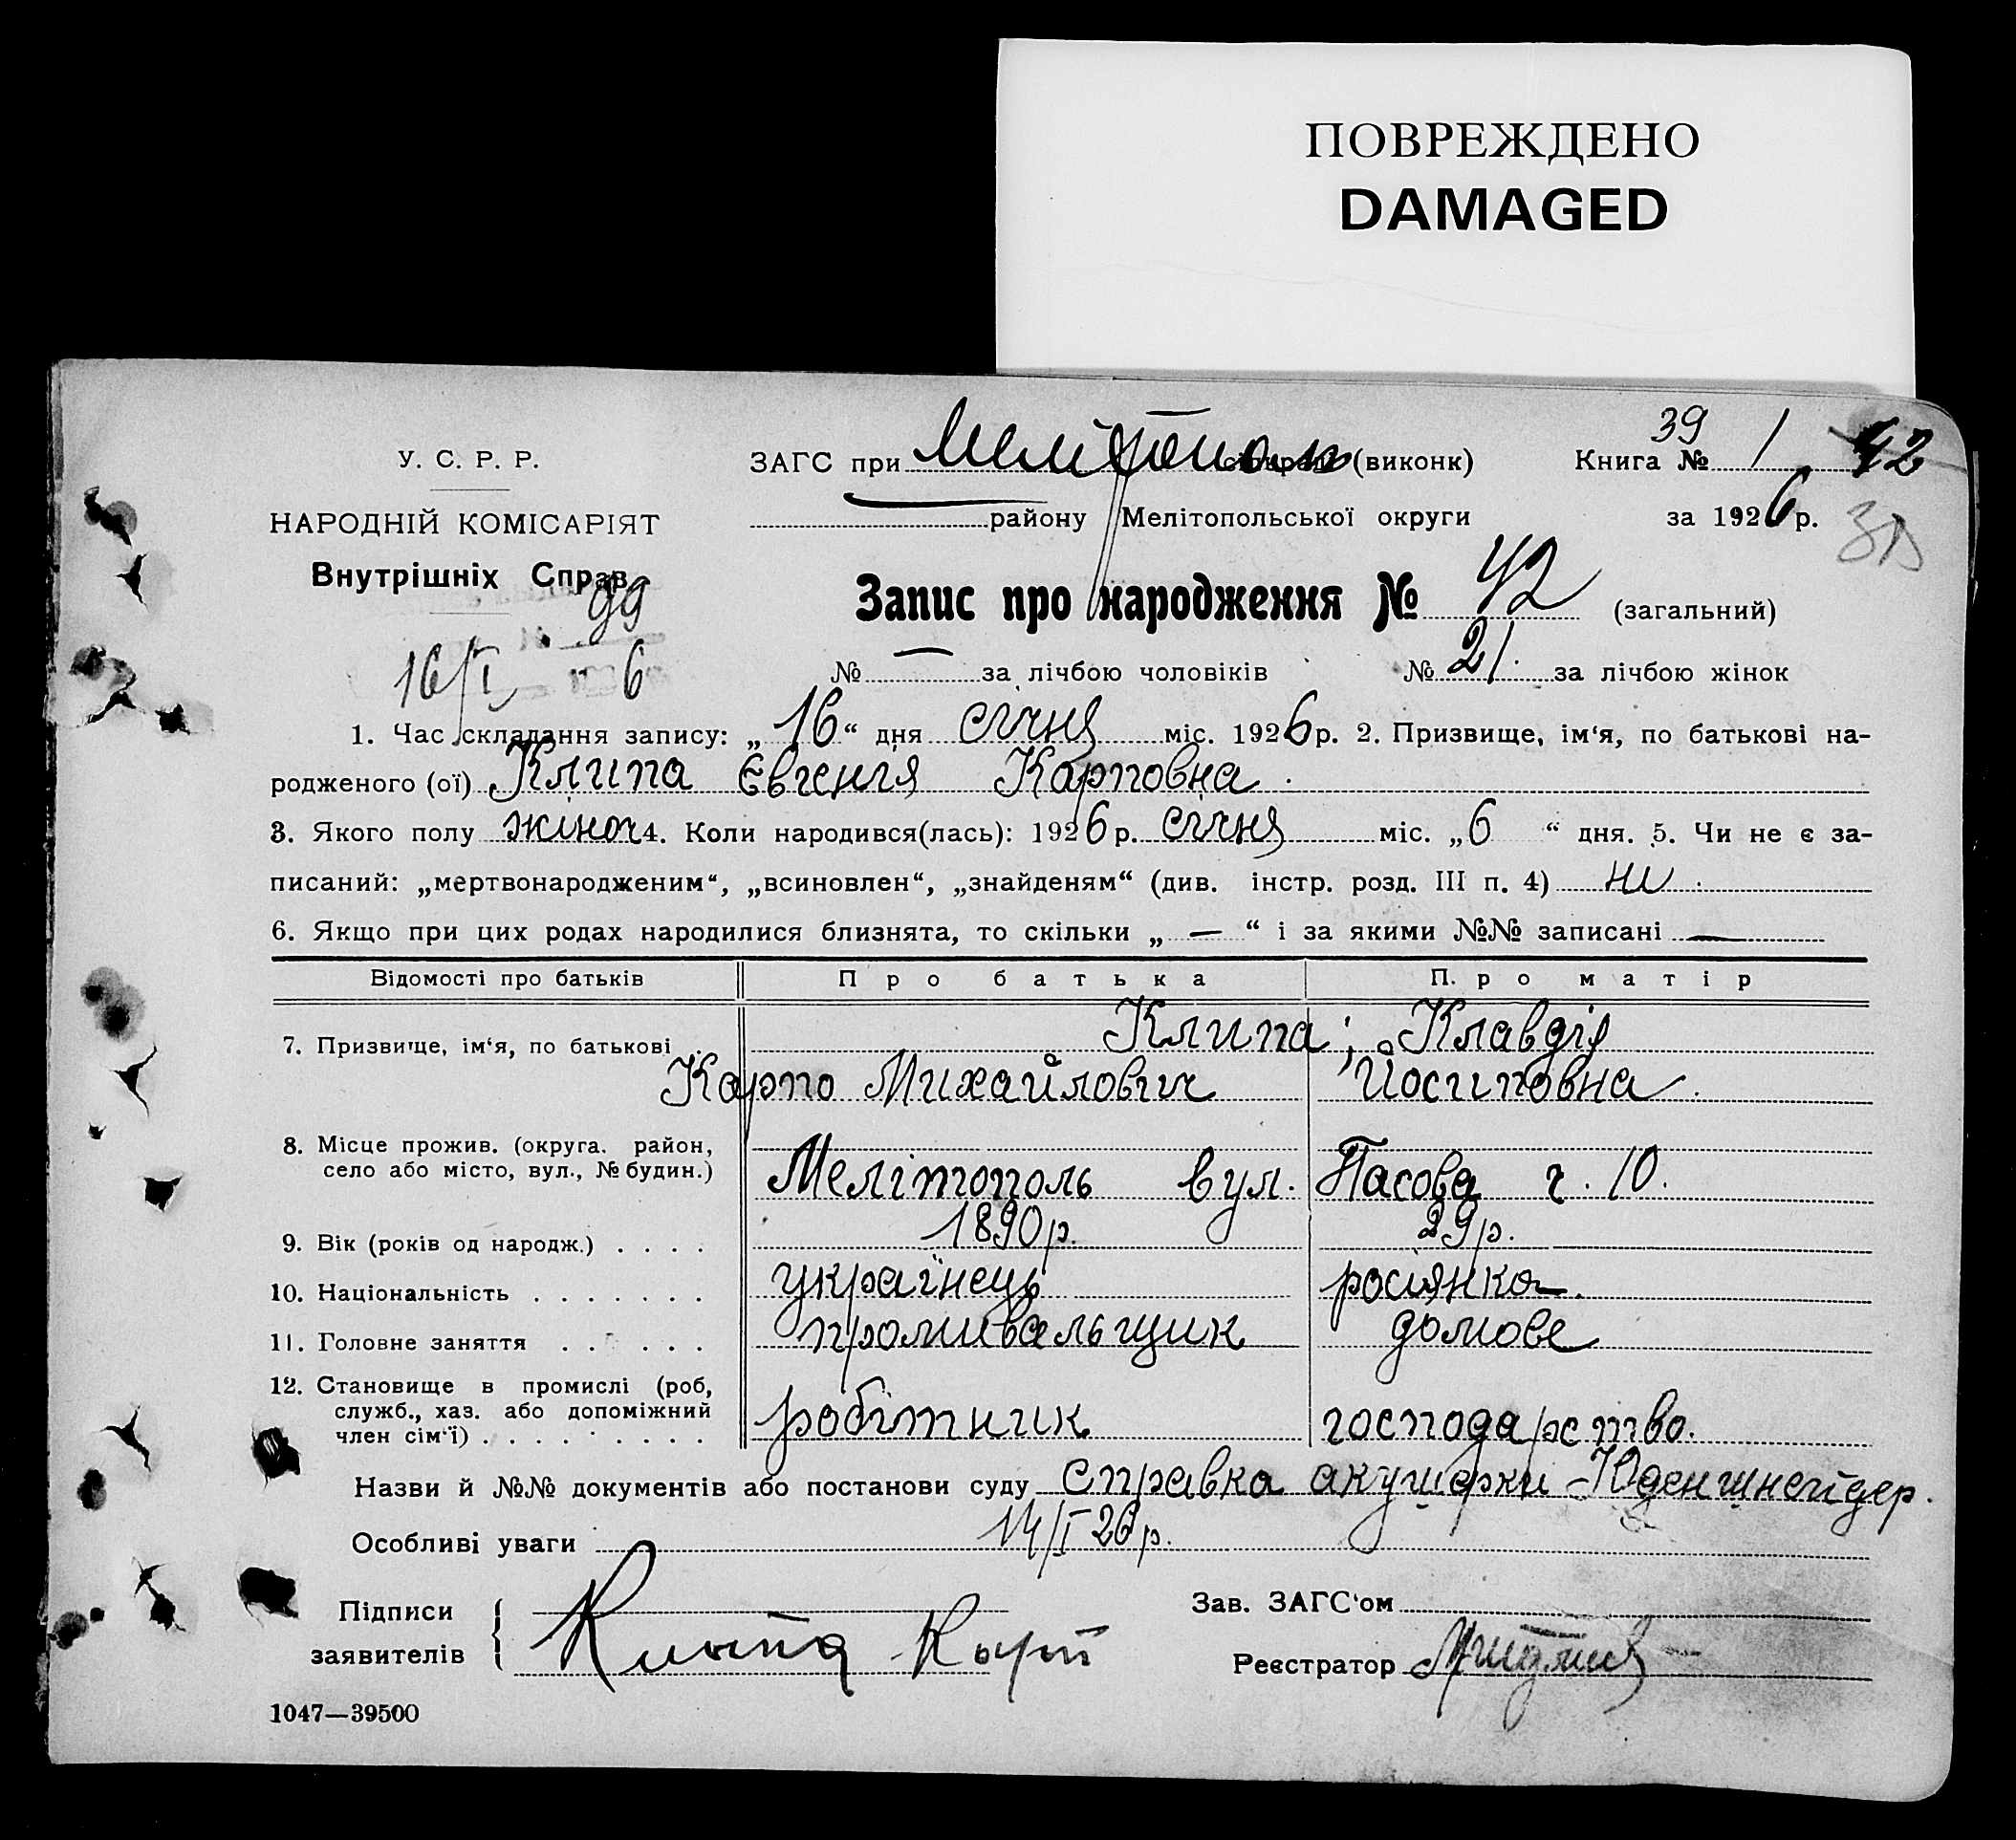 ПОВРЕЖДЕНО
DAMAGED
39
У. С. Р. Р.
ЗАГС при Мелітополь (виконк) Книга № 1 42
НАРОДНІЙ КОМІСАРІЯТ
району Мелітопольської округи за 1926 р.
Внутрішніх Справ
99
Запис про народження № 42 (загальний)
16/I 6
№ — за лічбою чоловіків № 21. за лічбою жінок
1. Час складання запису: „16“ дня січня міс. 1926 р. 2. Призвище, ім‘я, по батькові на-
родженого (ої) Клипа Євгенія Карповна.
3. Якого полу жіноч 4. Коли народився(лась): 1926 р. січня міс. „6“ дня. 5. Чи не є за-
писаний: „мертвонародженим“, „всиновлен“, „знайденям“ (див. інстр. розд. III п. 4) ні.
6. Якщо при цих родах народилися близнята, то скільки „—“ і за якими №№ записані —
Відомості про батьків Про батька П. ро матір
7. Призвище, ім‘я, по батькові Клипа; Клавдія
Карпо Михайлович Йосиповна.
8. Місце прожив. (округа. район,
село або місто, вул., № будин.) Мелітополь вул. Пасова ч. 10.
9. Вік (років од народж.) . . . . 1890 р. 29 р.
10. Національність . . . . . . . українець росіянка.
11. Головне заняття . . . . . . промивальщик домове
12. Становище в промислі (роб,
служб., хаз. або допоміжний
член сім‘ї) . . . . . . . . . робітник господарство.
Назви й №№ документів або постанови суду справка акушерки Юденшнейдер.
Особливі уваги 14/I 26 р.
Підписи
заявителів Клипа Карп
Зав. ЗАГС‘ом
Реєстратор
1047—39500